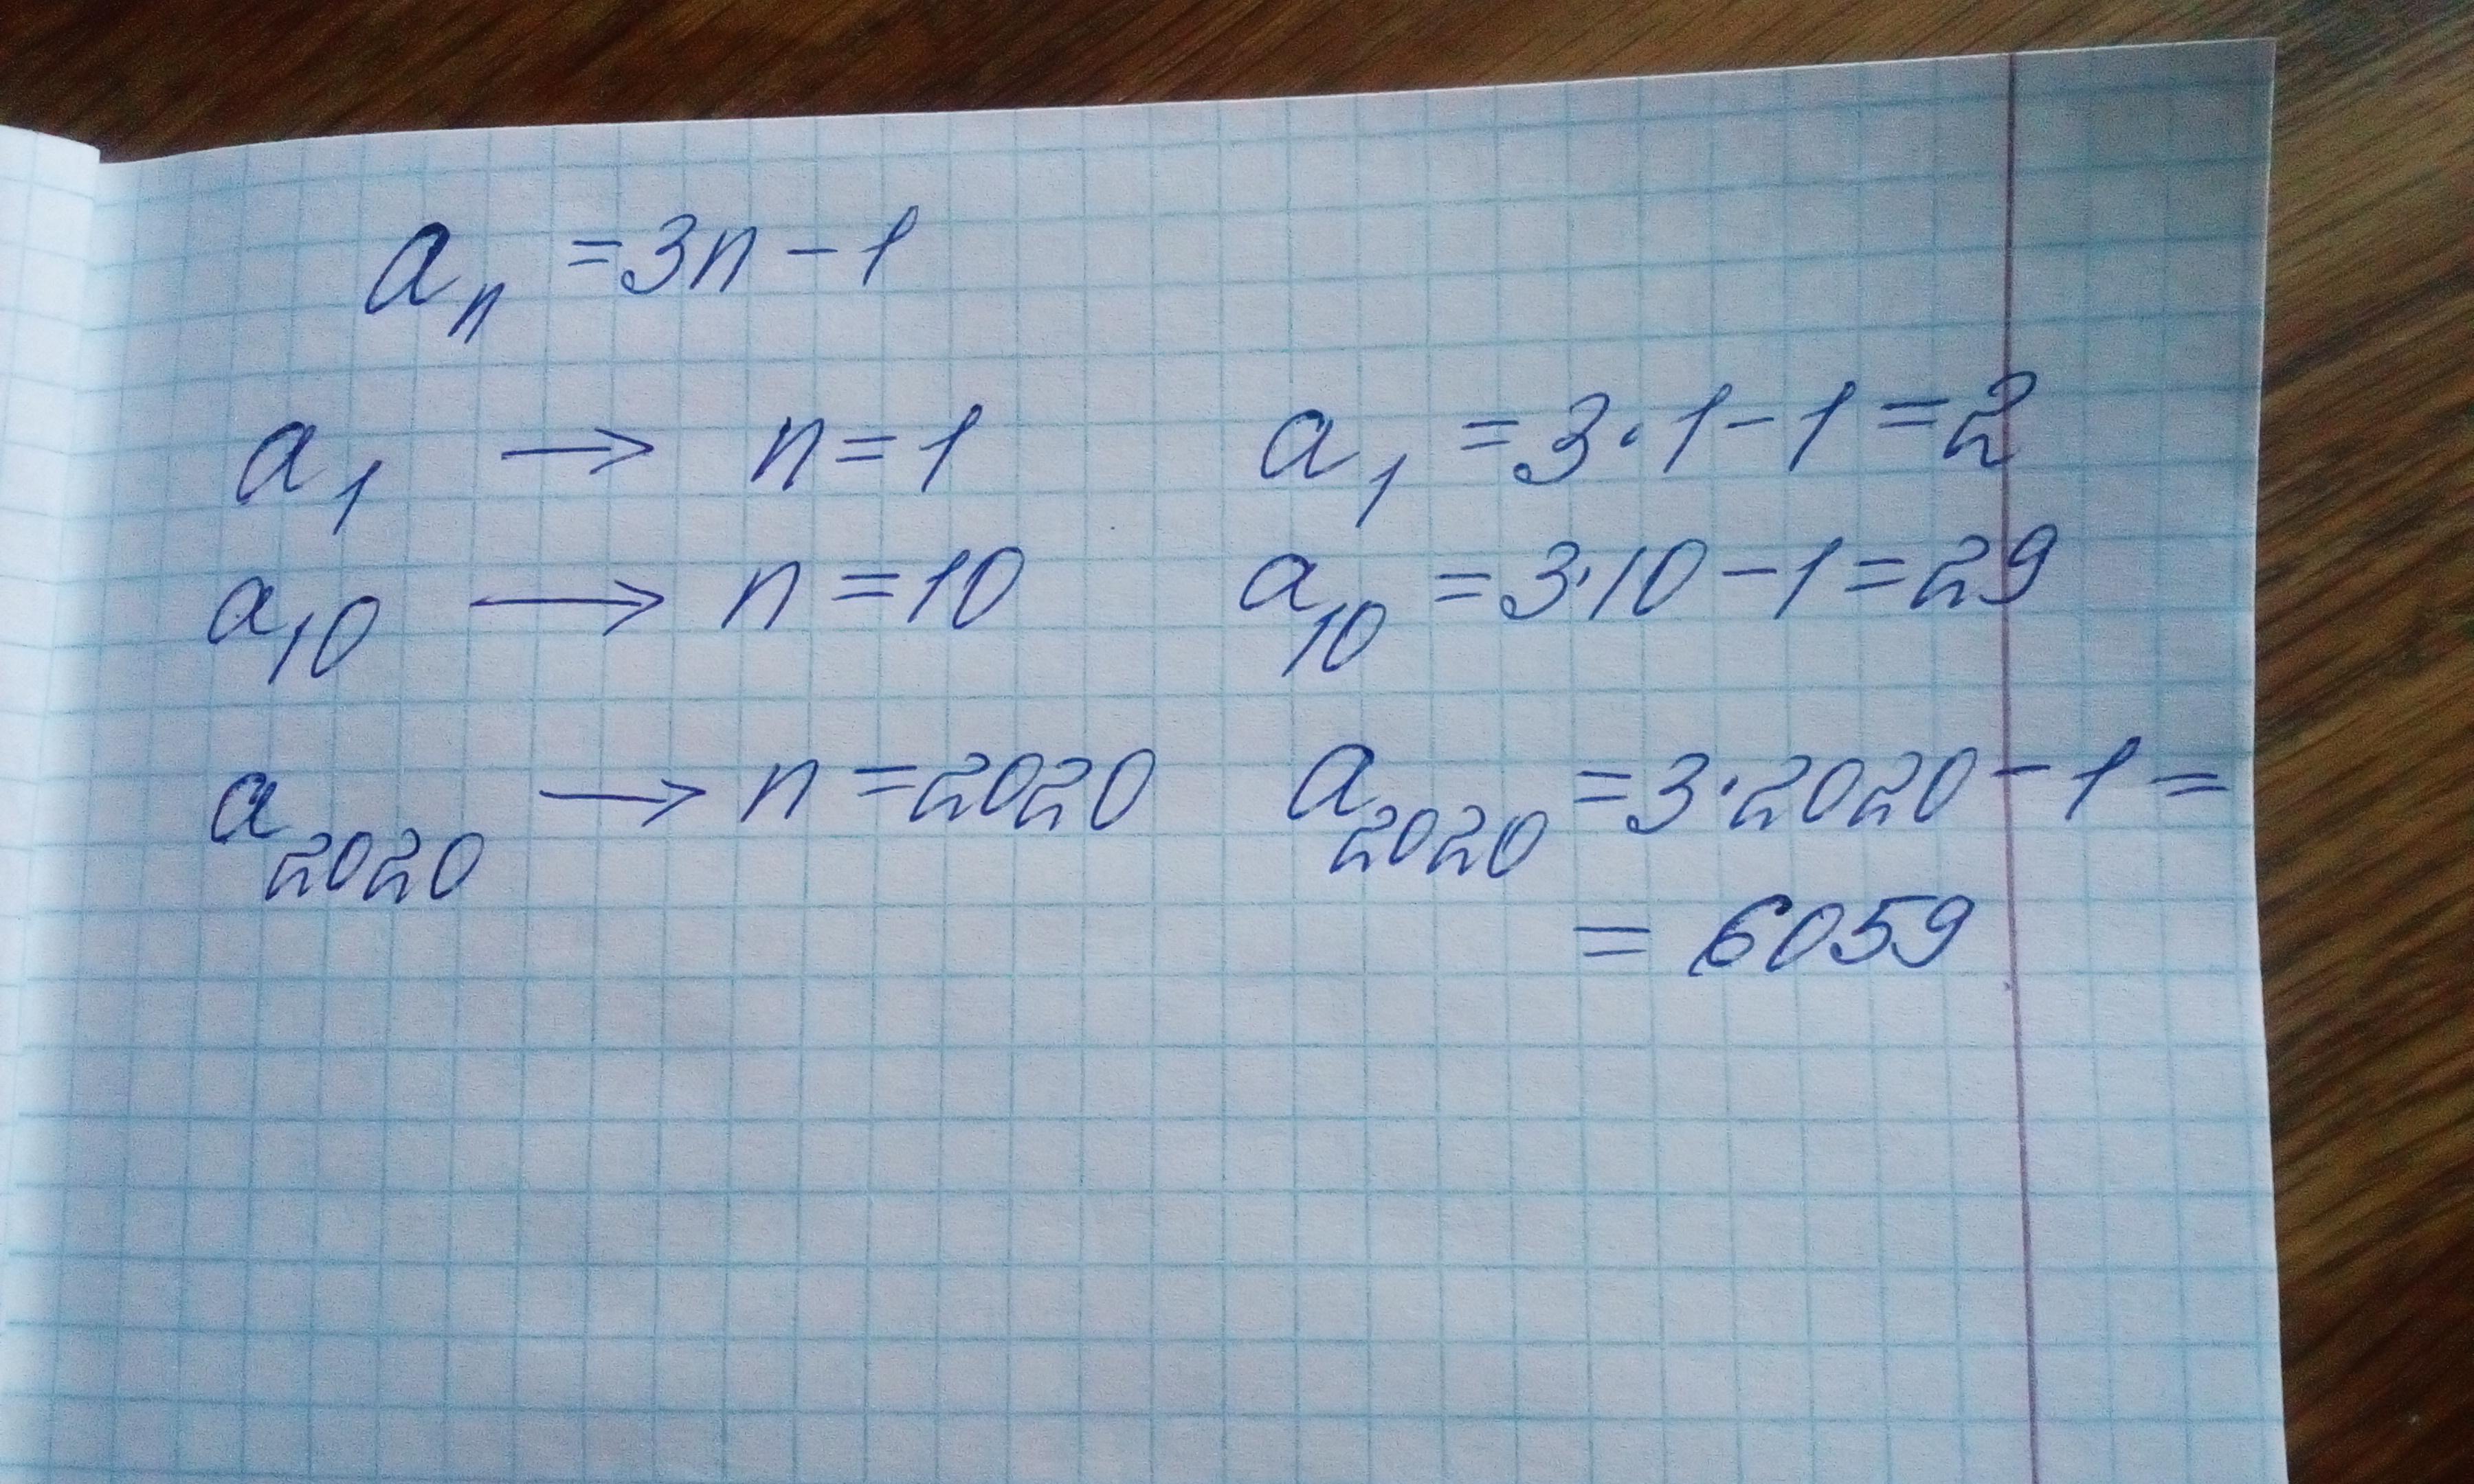 aₙ = 3n - 1
a₁ → n = 1 a₁ = 3·1 - 1 = 2
a₁₀ → n = 10 a₁₀ = 3·10 - 1 = 29
a₂₀₂₀ → n = 2020 a₂₀₂₀ = 3·2020 - 1 =
= 6059